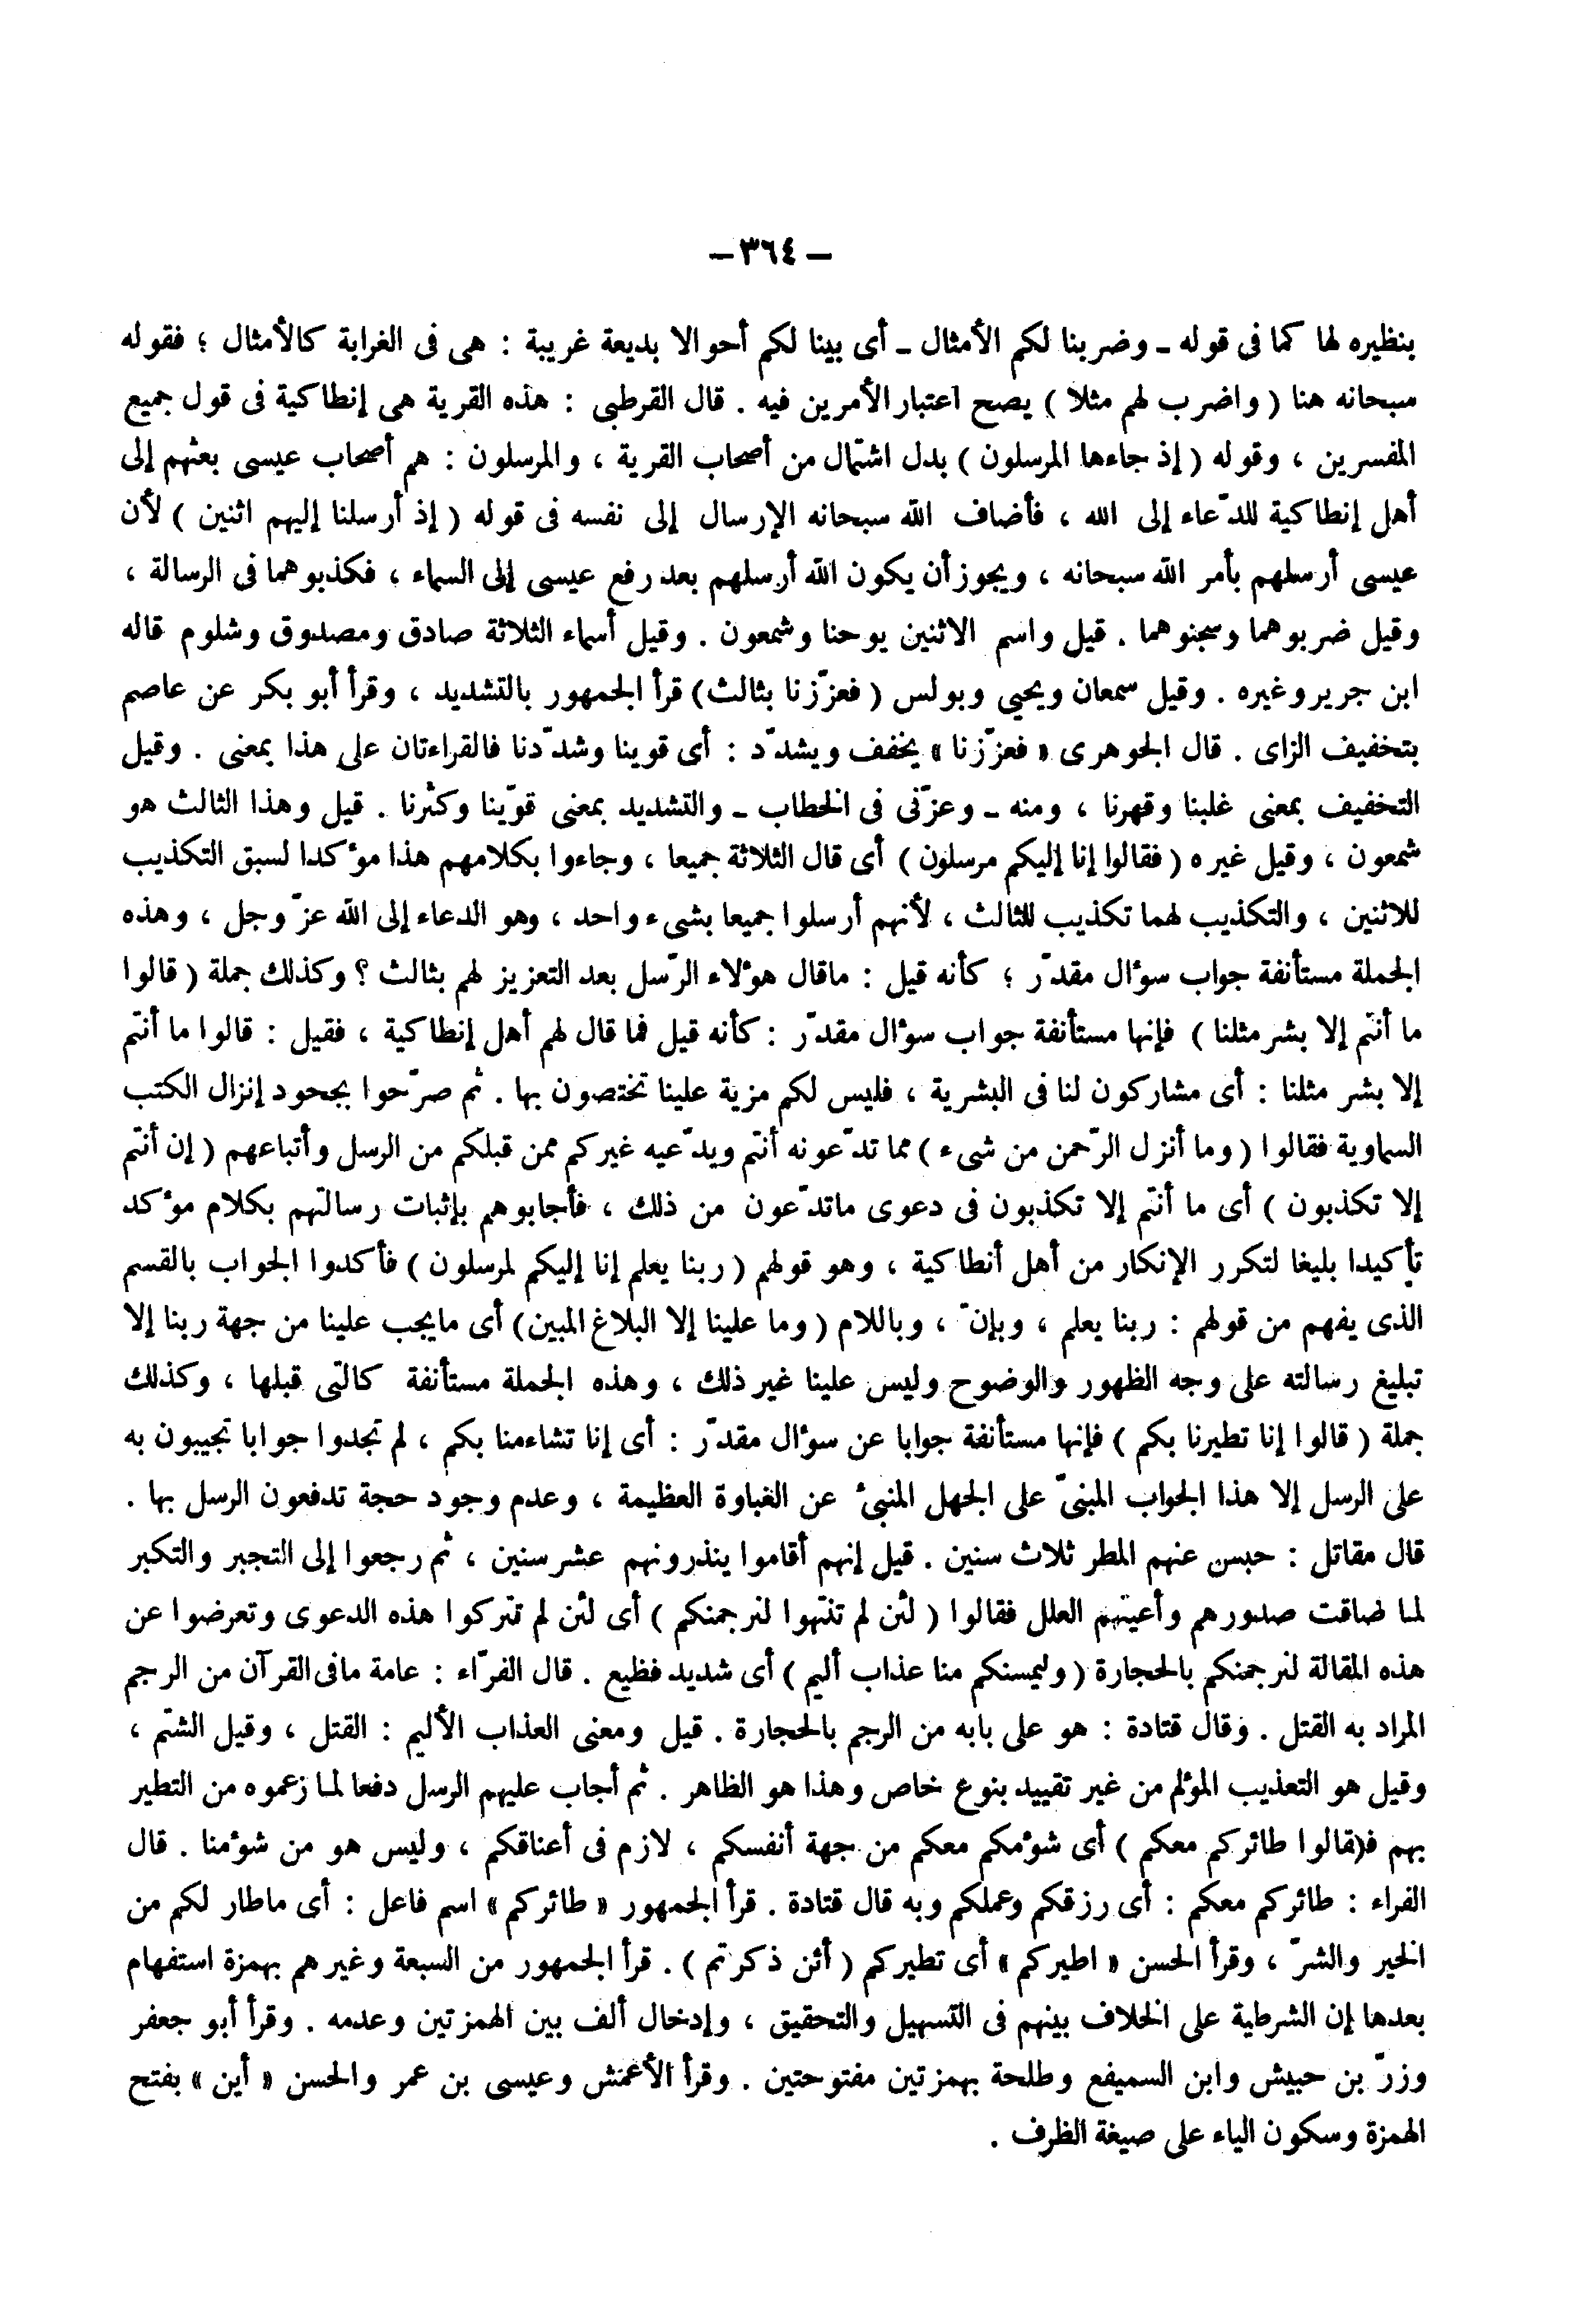 – ٣٦٤ –
بنظيره لها كما فى قوله ـ وضربنا لكم الأمثال ـ أى بينا لكم أحوالا بديعة غريبة : هى فى الغرابة كالأمثال ؛ فقوله
سبحانه هنا ( واضرب لهم مثلا ) يصح اعتبار الأمرين فيه . قال القرطبى : هذه القرية هى إنطاكية فى قول جميع
المفسرين ، وقوله ( إذ جاءها المرسلون ) بدل اشتمال من أصحاب القرية ، والمرسلون : هم أصحاب عيسى بعثهم إلى
أهل إنطاكية للدّعاء إلى الله ، فأضاف الله سبحانه الإرسال إلى نفسه فى قوله ( إذ أرسلنا إليهم اثنين ) لأن
عيسى أرسلهم بأمر الله سبحانه ، ويجوز أن يكون الله أرسلهم بعد رفع عيسى إلى السماء ، فكذبوهما فى الرسالة ،
وقيل ضربوهما وسجنوهما . قيل واسم الاثنين يوحنا وشمعون . وقيل أسماء الثلاثة صادق ومصدوق وشلوم قاله
ابن جرير وغيره . وقيل سمعان ويحيي وبولس ( فعزّزنا بثالث) قرأ الجمهور بالتشديد ، وقرأ أبو بكر عن عاصم
بتخفيف الزاى . قال الجوهرى « فعزّزنا » يخفف ويشدّد : أى قوينا وشدّدنا فالقراءتان على هذا بمعنى . وقيل
التخفيف بمعنى غلبنا وقهرنا ، ومنه ـ وعزّنى فى الخطاب ـ والتشديد بمعنى قوّينا وكثرنا . قيل وهذا الثالث هو
شمعون ، وقيل غيره ( فقالوا إنا إليكم مرسلون ) أى قال الثلاثة جميعا ، وجاءوا بكلامهم هذا مؤكدا لسبق التكذيب
للاثنين ، والتكذيب لهما تكذيب للثالث ، لأنهم أرسلوا جميعا بشىء واحد ، وهو الدعاء إلى الله عزّ وجل ، وهذه
الجملة مستأنفة جواب سؤال مقدّر ؛ كأنه قيل : ماقال هؤلاء الرّسل بعد التعزيز لهم بثالث ؟ وكذلك جملة ( قالوا
ما أنتم إلا بشر مثلنا ) فإنها مستأنفة جواب سؤال مقدّر : كأنه قيل فما قال لهم أهل إنطاكية ، فقيل : قالوا ما أنتم
إلا بشر مثلنا : أى مشاركون لنا فى البشرية ، فليس لكم مزية علينا تختصون بها . ثم صرّحوا بجحود إنزال الكتب
السماوية فقالوا ( وما أنزل الرّحمن من شىء ) مما تدّعونه أنتم ويدّعيه غيركم ممن قبلكم من الرسل وأتباعهم ( إن أنتم
إلا تكذبون ) أى ما أنتم إلا تكذبون فى دعوى ماتدّعون من ذلك ، فأجابوهم بإثبات رسالتهم بكلام مؤكد
تأكيدا بليغا لتكرر الإنكار من أهل أنطاكية ، وهو قولهم ( ربنا يعلم إنا إليكم لمرسلون ) فأكدوا الجواب بالقسم
الذى يفهم من قولهم : ربنا يعلم ، وبإنّ ، وباللام ( وما علينا إلا البلاغ المبين) أى مايجب علينا من جهة ربنا إلا
تبليغ رسالته على وجه الظهور والوضوح وليس علينا غير ذلك ، وهذه الجملة مستأنفة كالتى قبلها ، وكذلك
جملة ( قالوا إنا تطيرنا بكم ) فإنها مستأنفة جوابا عن سؤال مقدّر : أى إنا تشاءمنا بكم ، لم تجدوا جوابا تجيبون به
على الرسل إلا هذا الجواب المبنىّ على الجهل المنبئ عن الغباوة العظيمة ، وعدم وجود حجة تدفعون الرسل بها .
قال مقاتل : حبس عنهم المطر ثلاث سنين . قيل إنهم أقاموا ينذرونهم عشر سنين ، ثم رجعوا إلى التجبر والتكبر
لما ضاقت صدورهم وأعيتهم العلل فقالوا ( لئن لم تنتهوا لنرجمنكم ) أى لئن لم تتركوا هذه الدعوى وتعرضوا عن
هذه المقالة لنرجمنكم بالحجارة ( وليمسنكم منا عذاب أليم ) أى شديد فظيع . قال الفرّاء : عامة مافى القرآن من الرجم
المراد به القتل . وقال قتادة : هو على بابه من الرجم بالحجارة . قيل ومعنى العذاب الأليم : القتل ، وقيل الشتم ،
وقيل هو التعذيب المؤلم من غير تقييد بنوع خاص وهذا هو الظاهر . ثم أجاب عليهم الرسل دفعا لما زعموه من التطير
بهم فـ(ـقالوا طائركم معكم ) أى شؤمكم معكم من جهة أنفسكم ، لازم فى أعناقكم ، وليس هو من شؤمنا . قال
الفراء : طائركم معكم : أى رزقكم وعملكم وبه قال قتادة . قرأ الجمهور « طائركم » اسم فاعل : أى ماطار لكم من
الخير والشرّ ، وقرأ الحسن « اطيركم » أى تطيركم ( أئن ذكرتم ) . قرأ الجمهور من السبعة وغيرهم بهمزة استفهام
بعدها إن الشرطية على الخلاف بينهم فى التسهيل والتحقيق ، وإدخال ألف بين الهمزتين وعدمه . وقرأ أبو جعفر
وزرّ بن حبيش وابن السميفع وطلحة بهمزتين مفتوحتين . وقرأ الأعمش وعيسى بن عمر والحسن « أين » بفتح
الهمزة وسكون الياء على صيغة الظرف .